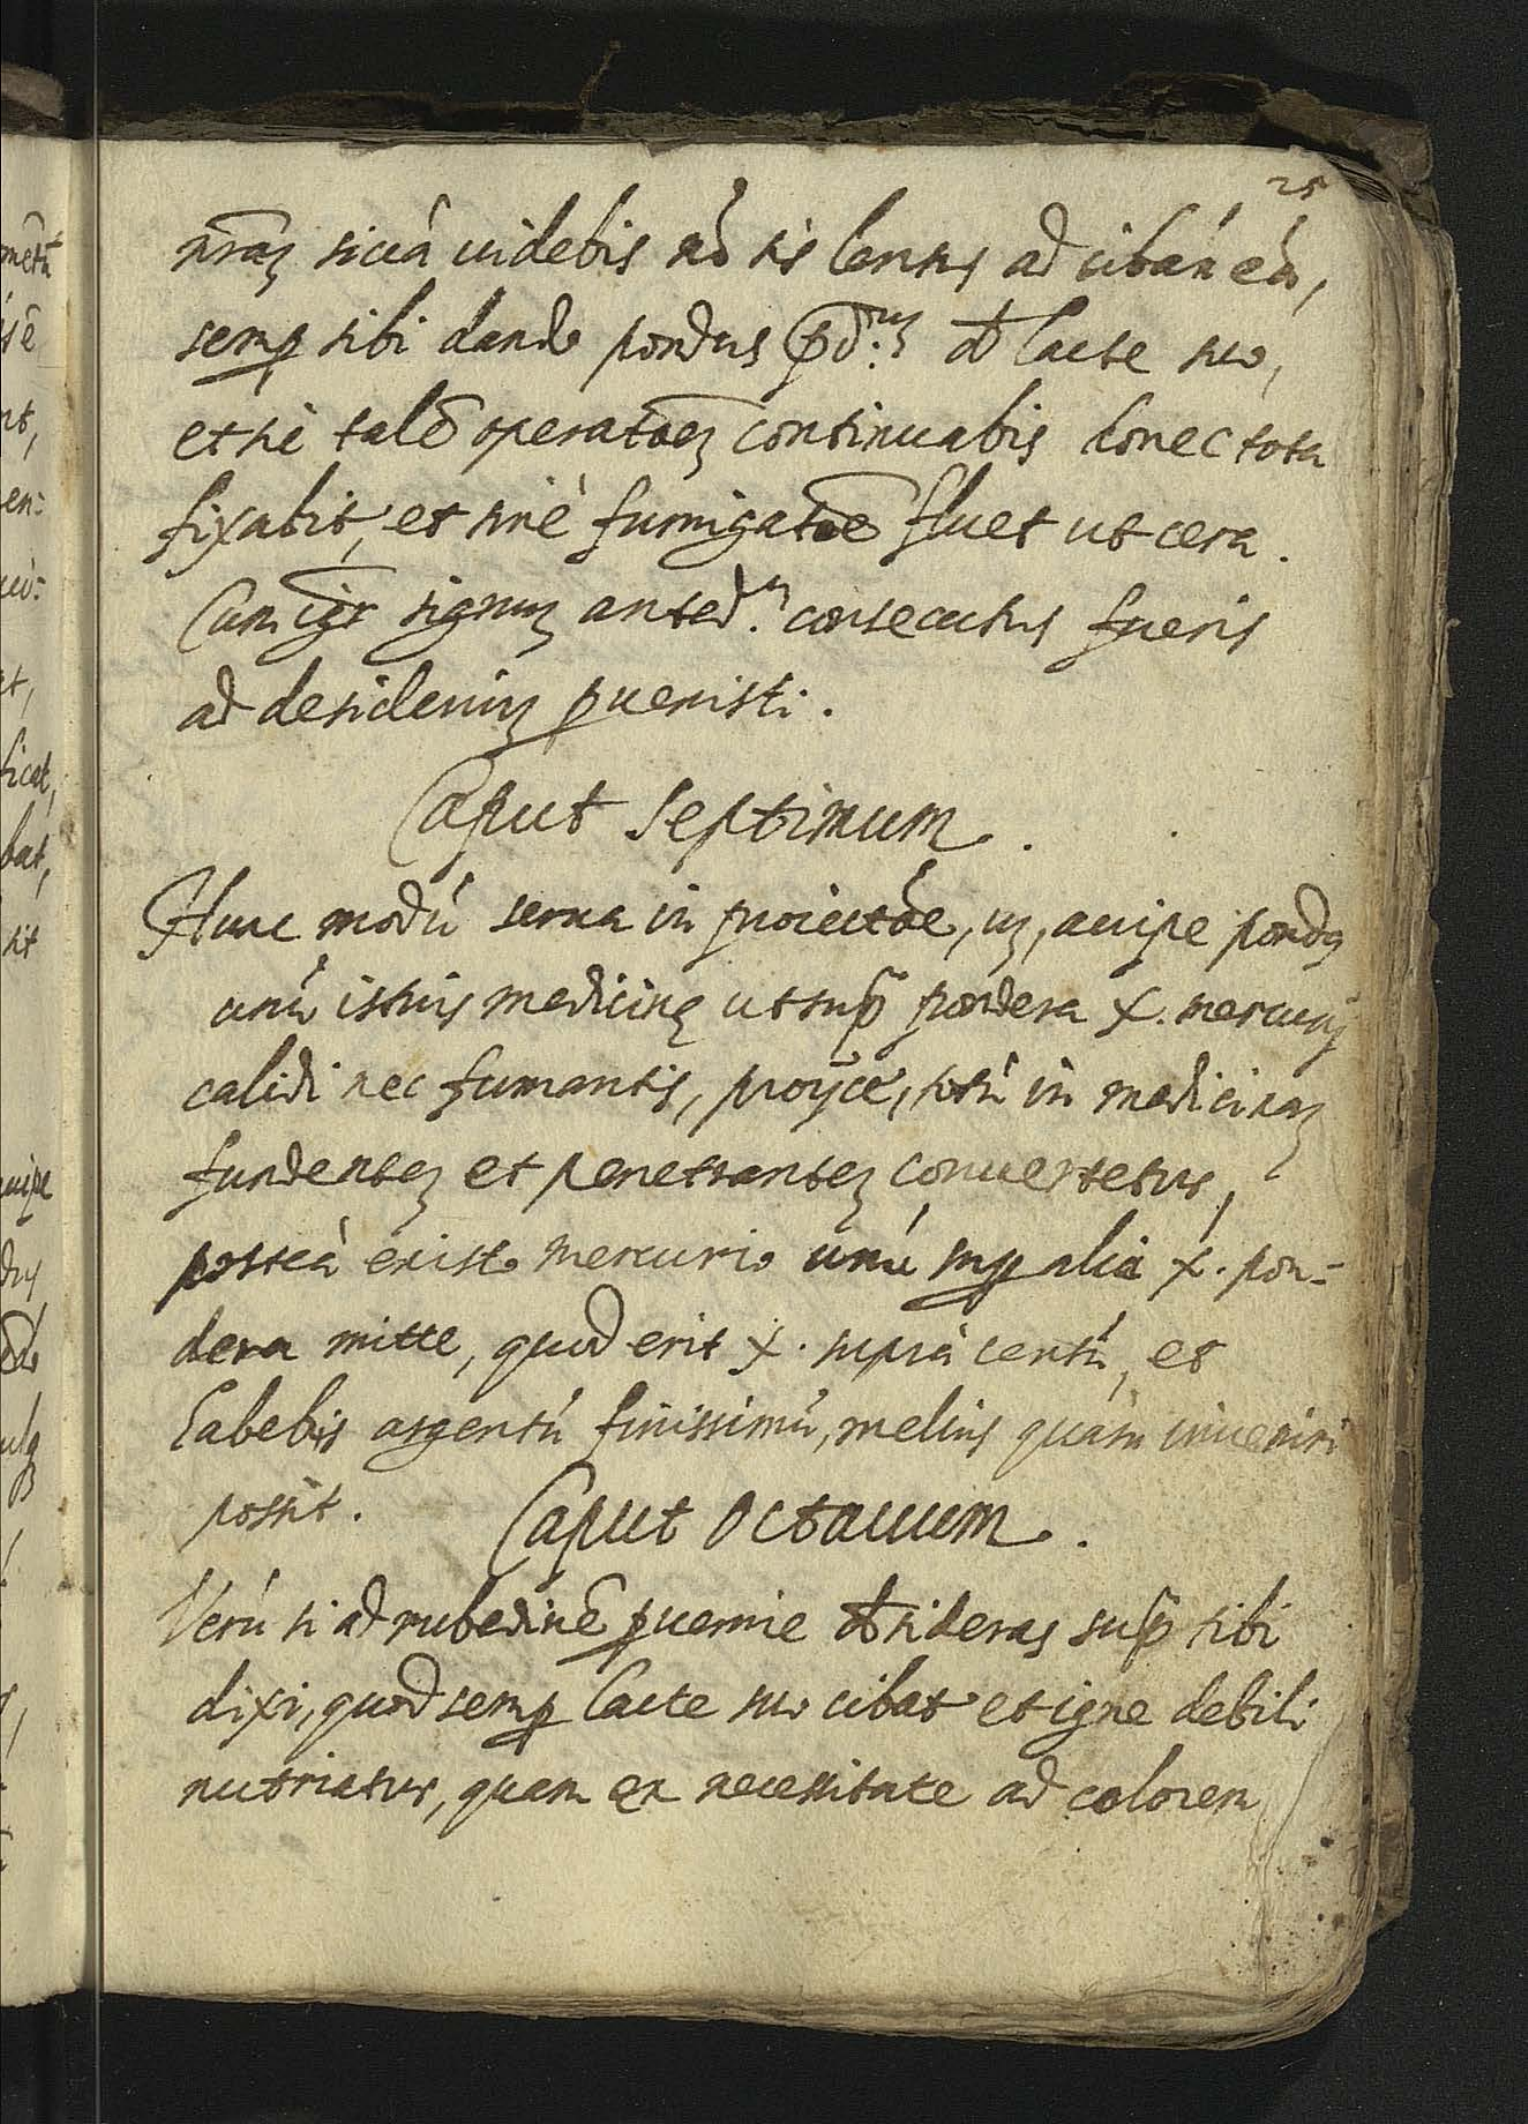 25
nr̃aʒ siccà uidebis nõ sis lentus ad cibań eà,
semp̱ sibi dando pondus p̃d.ũʒ de lacte suo,
et sic talẽ operatõeʒ continuabis donec tota
fixabit, et sinè fumigatõe fluet ut cera.
Cum igr̃ signuʒ anted.ᵐ consecutus fueris
ad desideriuʒ p̱uenisti.
Caput septimum.
Hunc modú serua in proiectõe, uʒ, accipe pondꝰ
unú istius medicinę ut sup̃ pondera x. mercurij
calidi nec fumantis, proijcé, totú in medicinaʒ
fundenteʒ et penetranteʒ conuertetur,
posteà ex isto mercurio unú sup̱ alia x. pon-
dera mitte, quod erit x. suprà centú, et
habebis argentú finissimú, melius quàm inueniri
possit.
Caput Octauum.
Verú si ad rubedinẽ p̱uenire desideras sup̃ tibi
dixi, quod semp̱ lacte suo cibat et igne debili
nutriatur, quam ex necessitate ad colorem